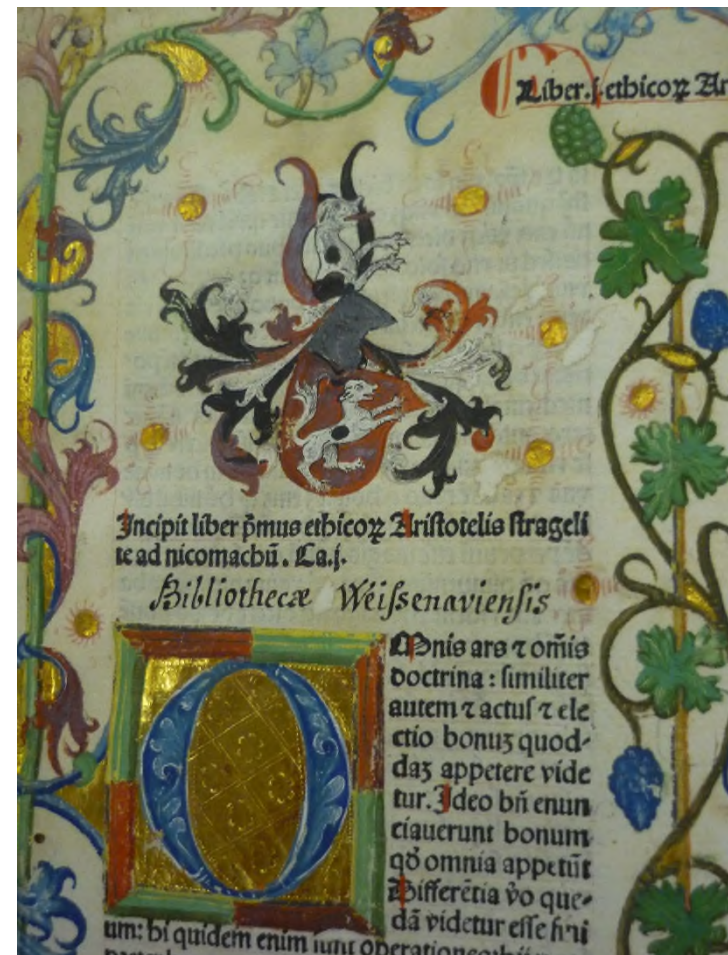 Liber .j. ethicoꝝ Ar
Incipit liber p̄mus ethicoꝝ Aristotelis strageli
te ad nicomachū. Ca.j.
Bibliothecæ Weissenaviensis
Omnis ars ⁊ om̄is
doctrina : similiter
autem ⁊ actus ⁊ ele
ctio bonuʒ quod-
daʒ appetere vide
tur. Ideo bn̄ enun
ciauerunt bonum
qd̄ omnia appetūt
Differētia v̄o que-
dā videtur esse fini
um: hi quidem enim sunt operationes: hij